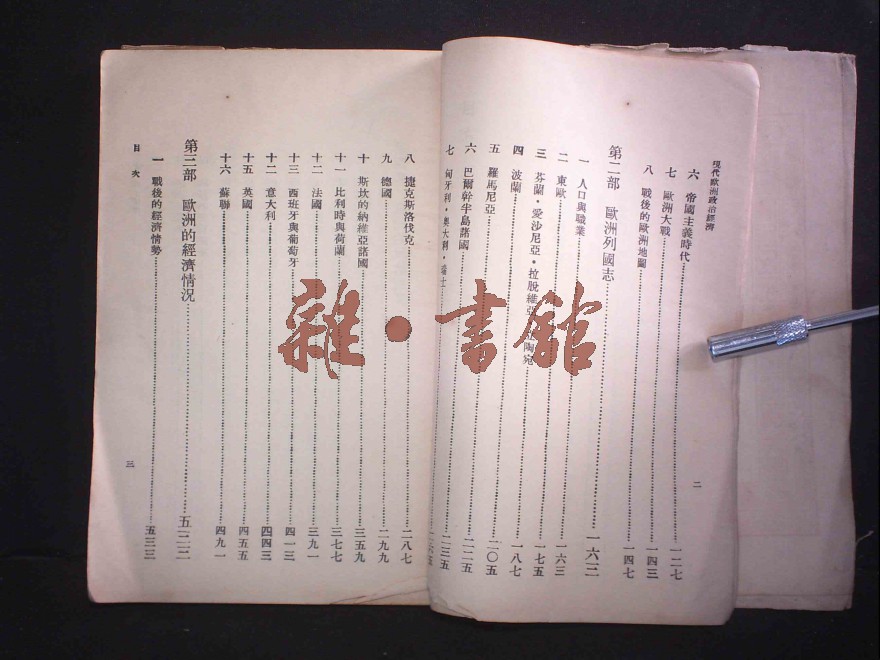 現代歐洲政治經濟
二
六 帝國主義時代……一二七
七 歐洲大戰……一四三
八 戰後的歐洲地圖……一四七
第二部 歐洲列國志……一六二
一 人口與職業……一六三
二 東歐……一七五
三 芬蘭·愛沙尼亞·拉脫維亞 陶宛……一八七
四 波蘭……二〇五
五 羅馬尼亞……二二五
六 巴爾幹半島諸國……二三五
七 匈牙利·奧大利·瑞士……六五
八 捷克斯洛伐克……二八七
九 德國……二九九
十 斯坎的納維亞諸國……三五九
十一 比利時與荷蘭……三七七
十二 法國……三九一
十三 西班牙與葡萄牙……四一三
十二 意大利……四四三
十五 英國……四五五
十六 蘇聯……四九一
第三部 歐洲的經濟情況……五二二
一 戰後的經濟情勢……五二三
目次
三
雜·書館